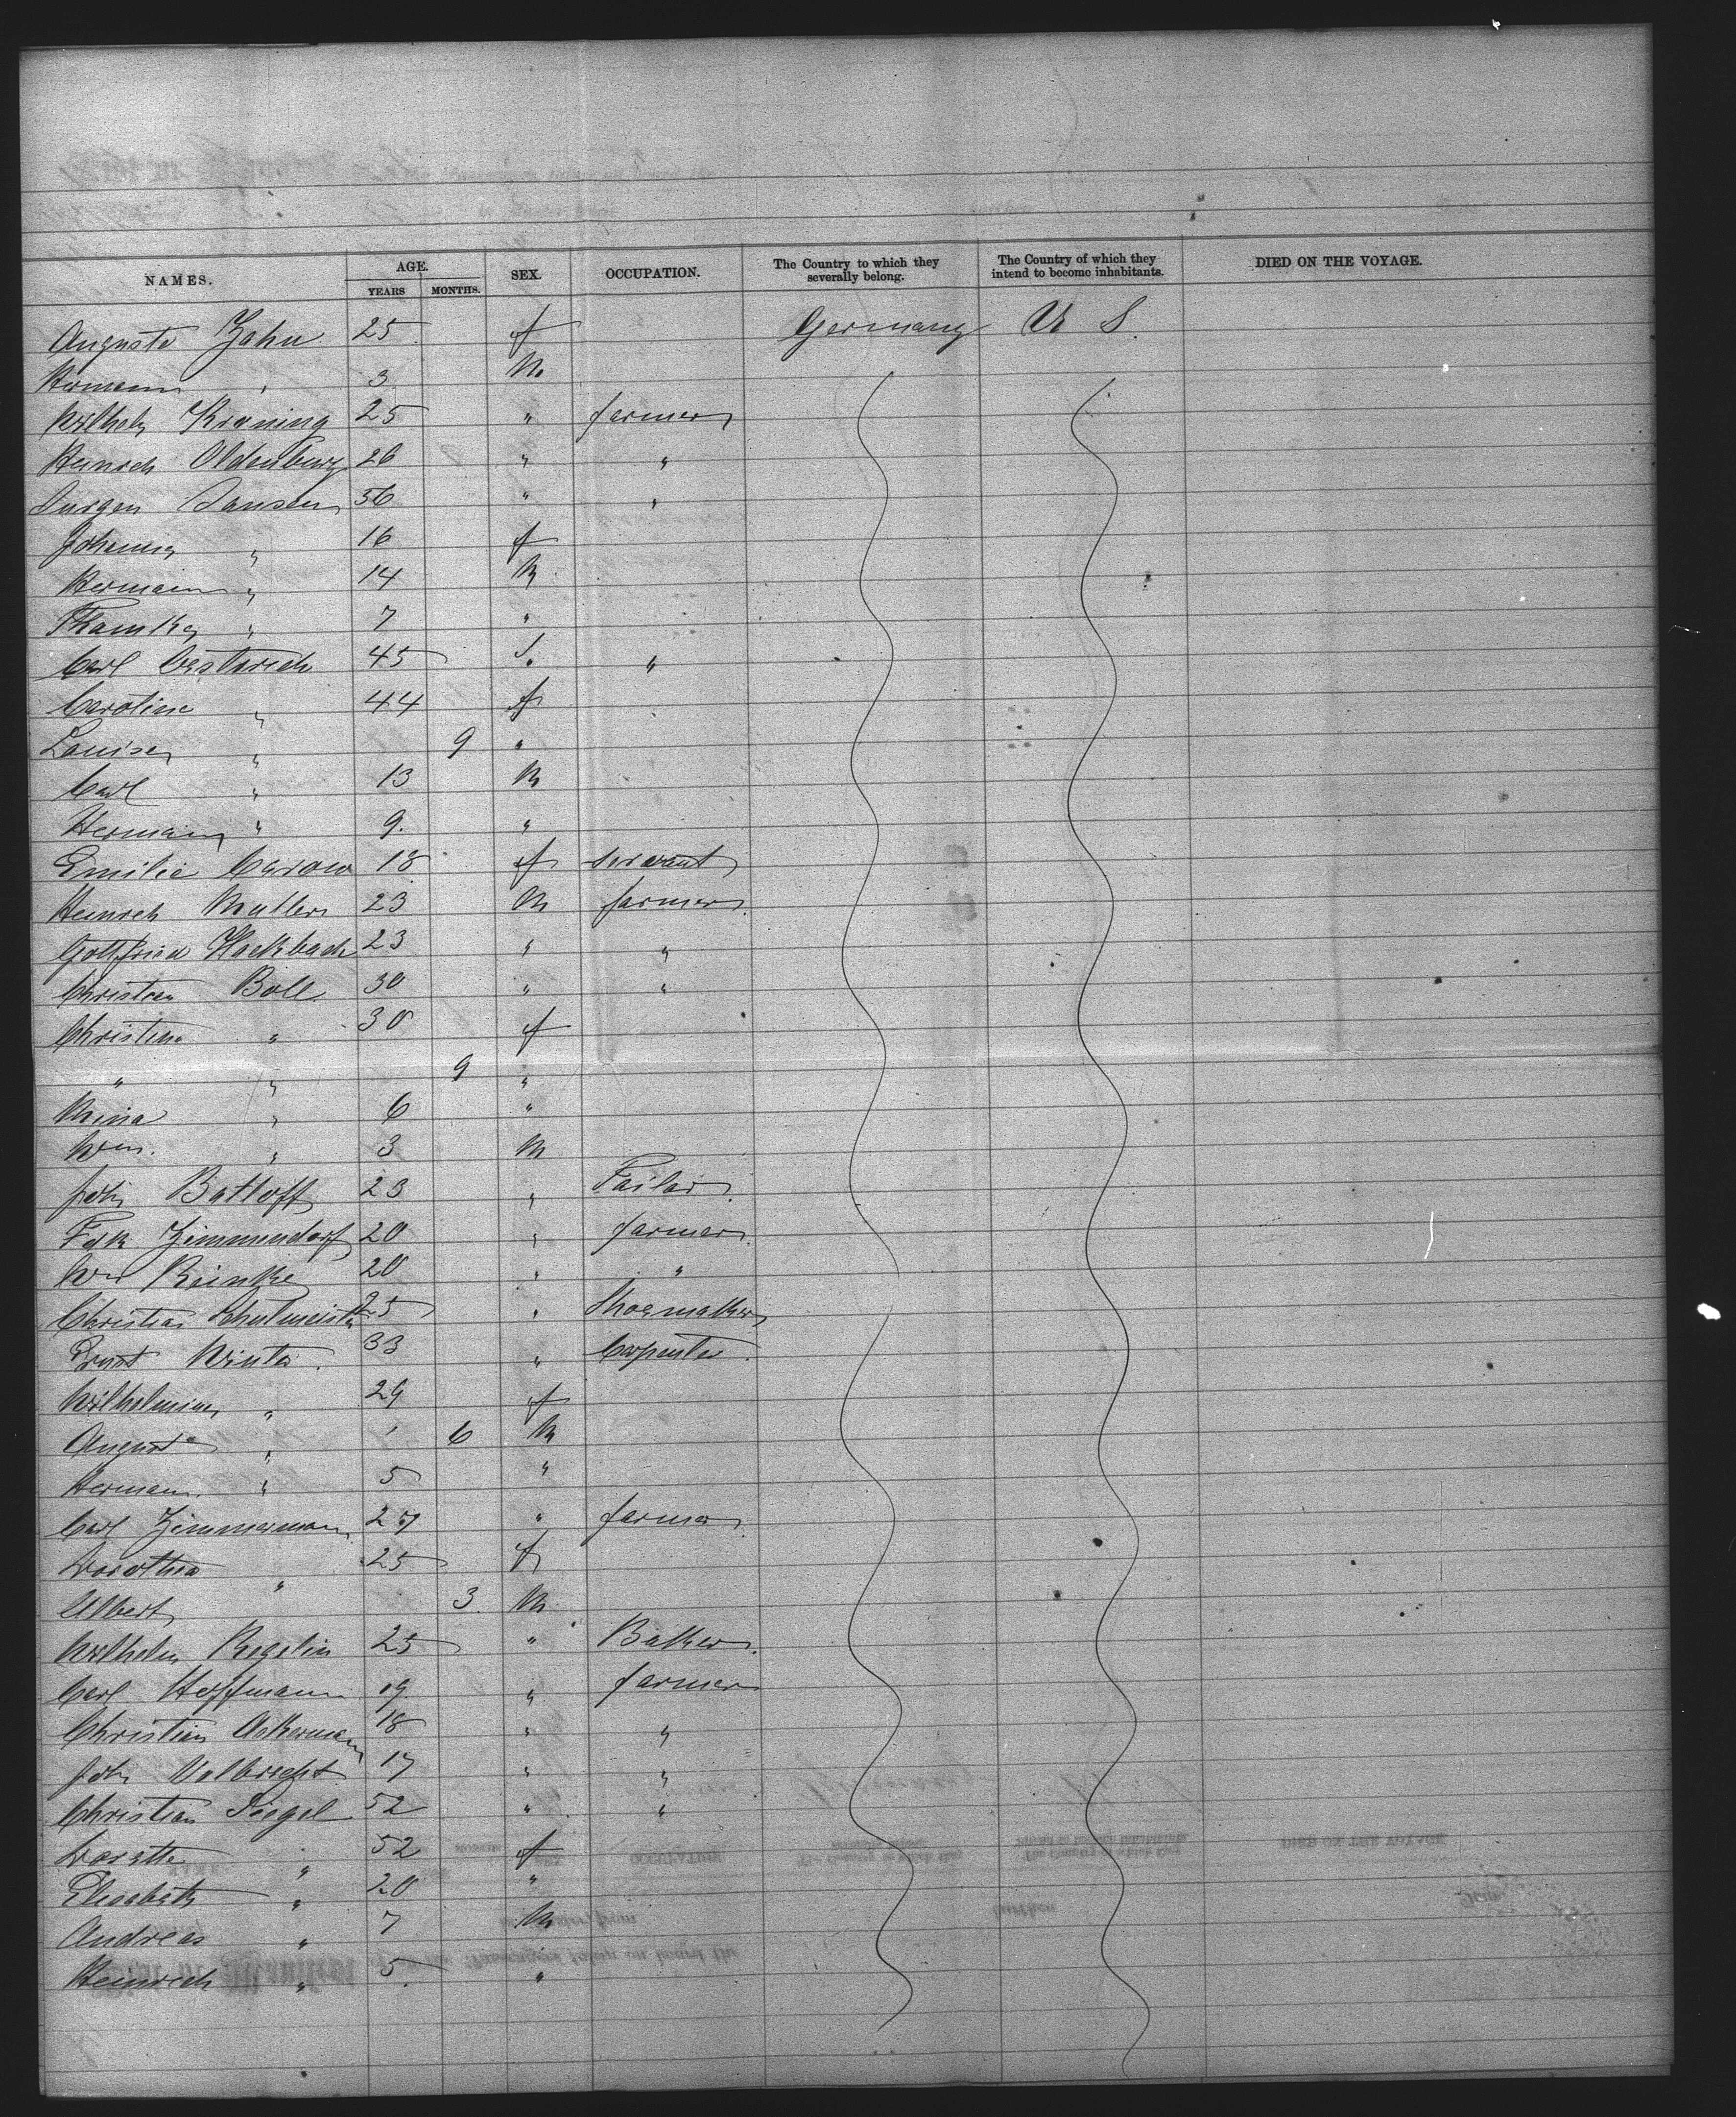 NAMES. AGE. SEX. OCCUPATION. The Country to which they severally belong. The Country of which they intend to become inhabitants. DIED ON THE VOYAGE.
YEARS MONTHS.
Auguste Zahn 25 f Germany U S.
Hermann " 3 M
Wilhelm Kraning 25 " farmer
Heinrich Oldenburg 26 " "
Jurgen Jansen 56 " "
Johanna " 16 f
Hermann " 14 M
" 7 "
Carl Oestreich 45 "
Caroline " 44 f
Louise " 9 "
Carl " 13 M
Hermann " 9. "
Emilie Carow 18 f servant
Heinrich Mullers 23 M farmer
Gottfried Hackbach 23 " "
Christian Boll 30 " "
Christina " 30 f
" " 9 "
Mina " 6 "
Wm. " 3 M
John Batloff 23 " Tailor
Zimmendorf 20 " farmer
Wm Reinke 20 " "
Christian Schulmeister 25 " Shoemaker
Ernst Winter 33 " Carpenter
Wilhelmina " 29 f
August " 1 6 M
Hermann " 5 "
Carl Zimmermann 27 " farmer
Dorothea " 25 f
Albert 3 M
Wilhelm Regelin 25 " Baker
Carl Hoffmann 19 " farmer
Christian Ackermann 18 " "
John Volbrecht 17 " "
Christian Siegel 52 " "
Dorette " 52 f
Elisabeth " 20 "
Andreas " 7 M
Heinrich " 5. "